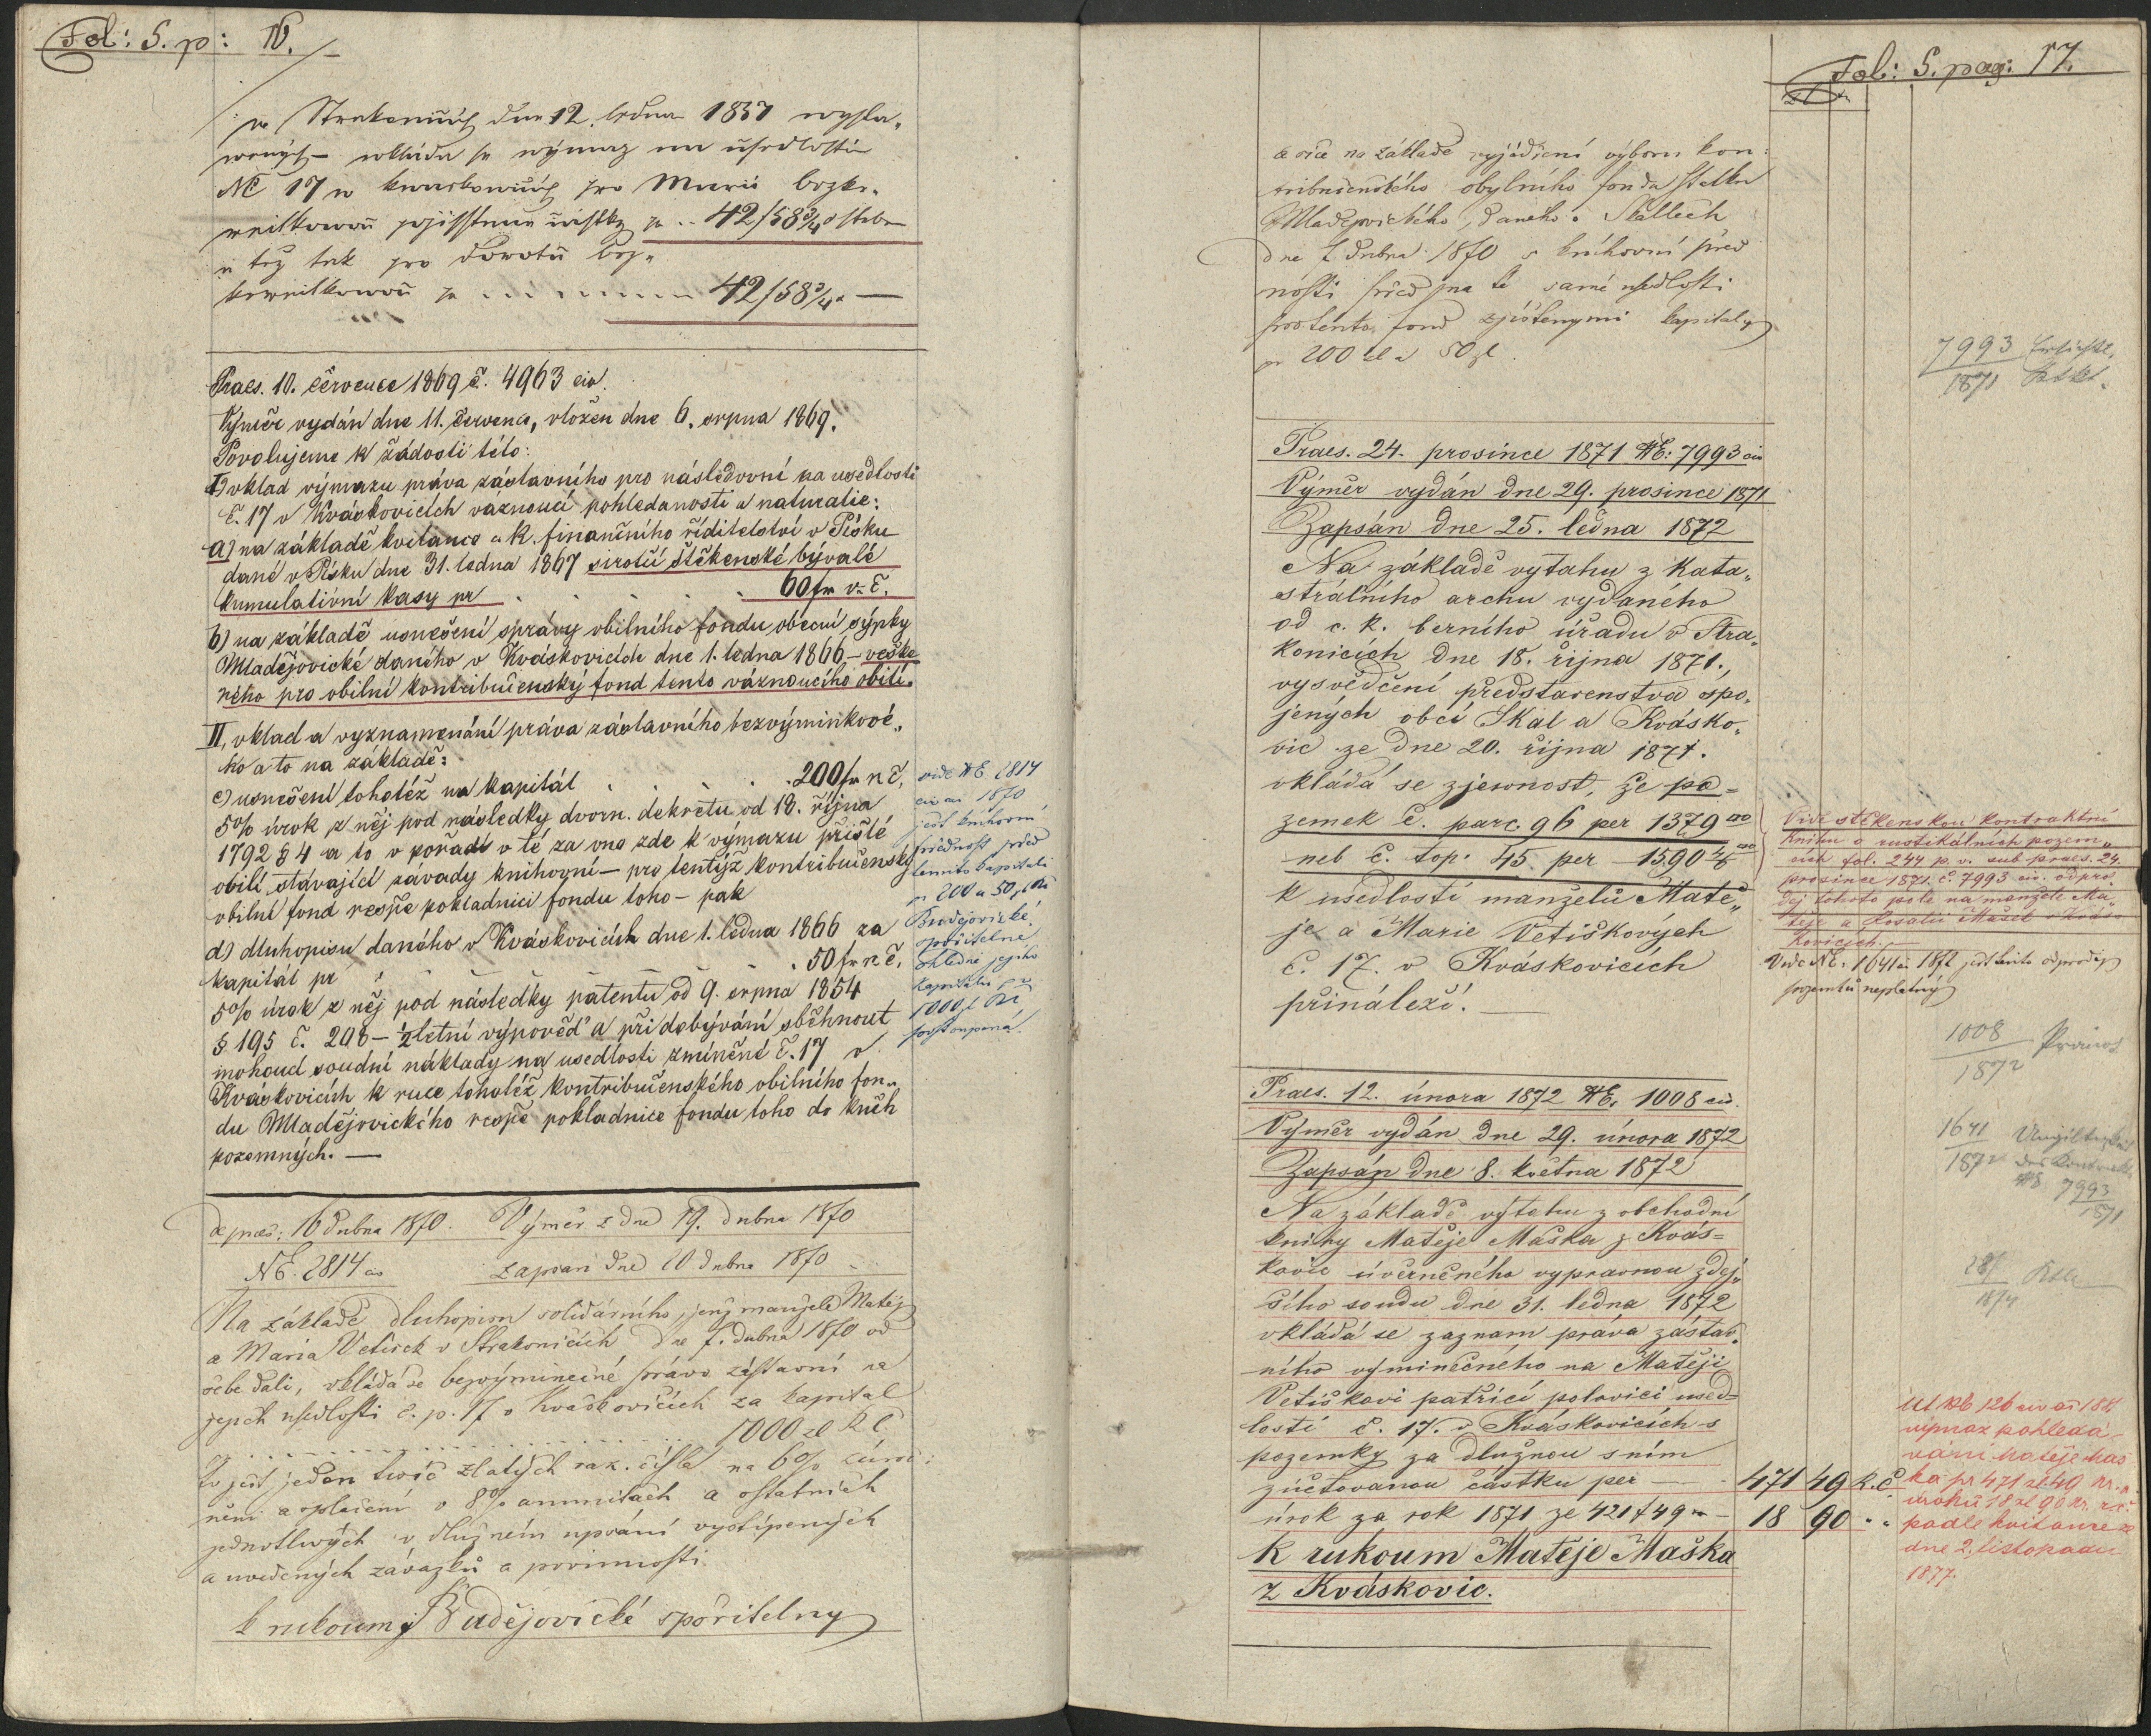 Fol: S. p: 16.
w Strakonicých dne 12. ledna 1837 wysta„
wených – wkládá se výmaz na usedlosti
NE 17 w Kwaskowicých pro Marii
pojisstěné částky pr .. 42/58 3/4
a též tak pro Dorotu
pr . . . . . 42/58 3/4 —
Praes. 10. července 1869 č. 4963 civ.
Výměr vydán dne 11. července, vložen dne 6. srpna 1869.
Povolujeme k žádosti této:
I) vklad výmazu práva zástavního pro následovní na usedlosti
č. 17 v Kváskovicích váznoucí pohledanosti a naturalie:
a) na základě kvitance c. k. finančního ředitelství v Písku
dané v Písku dne 31. ledna 1867 sirotčí štěkenské bývalé
kumulativní kasy pr . . . . 60 fr v. č.
b) na základě usnešení správy obilního fondu obecní sýpky
Mladějovické daného v Kváskovicích dne 1. ledna 1866 – veške„
ného pro obilní kontribučenský fond tento váznoucího obilí.
II, vklad a vyznamenání práva zástavního bezvýminkové„
ho a to na základě:
c) usnešení tohotéž na kapitál . . . . 200 fr r. č,
5% úrok z něj pod následky dvorn. dekretu od 18. října
1792 § 4 a to v pořadí v té za vno zde k výmazu přišlé
obilí stávající závady knihovní – pro tentýž kontribučenský
obilní fond respe pokladnici fondu toho – pak
d) dluhopisu daného v Kváskovicích dne 1. ledna 1866 za
kapitál pr . . . . 50 fr r. č,
5% úrok z něj pod následky patentu od 9. srpna 1854
§ 195 č. 208 – 1/2 letní výpověď a při dobývání sběhnout
mohoucí soudní náklady na usedlosti zmíněné č. 17 v
Kváskovicích k ruce tohotéž kontribučenského obilního fon„
du Mladějovického respe pokladnice fondu toho do kněh
pozemných. —
vide NE 2814
civ ai 1870
jest knihovní
přednost před
těmito kapitali
pr 200 a 50 zl RČ
Budějovické
spořitelně
ohledně jejího
kapitálu pr
1000 zl RČ
postoupená.
de praes: 16 dubna 1870. Výměr z dne 19. dubna 1870
NE. 2814 civ zapsán dne 20 dubna 1870
Na základě dluhopisu solidárního, jenž manželé Matěj
a Maria Vetiček v Strakonicích dne 7. dubna 1870 od
sebe dali, vkládá se bezvýminečné právo zástavní na
jejich usedlosti č. p. 17 v Kváskovicích za kapitál
pr . . . . . 1000 zl R Č
to jest jeden tisíc zlatých rak. čísla na 6% zúro:
čení a splacení v 8% annuitách a ostatních
jednotlivých v dlužném upsání vyštípených
a uvedených závazků a povinností
k rukoum Budějovické spořitelny
Fol: S. pag: 17.
zl kr
a sice na základě vyjádření výboru kon:
tribučenského obylního fondu statku
Mladějovického, daného v Skallech
dne 7 dubna 1870 s knihovní před
ností před na té samé usedlosti
pro tento fond zjištěnými kapitaly
pr 200 zl a 50 zl.
7993
1871
Praes. 24. prosince 1871 NE: 7993 civ
Výměr vydán dne 29. prosince 1871
Zapsán dne 25. ledna 1872
Na základě výtahu z kata„
strálního archu vydaného
od c. k. berního úřadu v Stra„
konicích dne 18. října 1871.,
vysvědčení představenstva spo„
jených obcí Skal a Kvásko„
vic ze dne 20. října 1871.
vkládá se zjevnost, že po=
zemek č. parc. 96 per 1379 □°
neb č. top. 45 per 1590 4/6 □°
k usedlosti manželů Matě„
je a Marie Vetiškových
č. 17. v Kváskovicích
přináleží. —
Vide štěkenskou kontraktní
knihu o rustikálních pozem„
cích fol. 244 p. v. sub praes. 24.
prosince 1871. č. 7993 civ. odpro„
dej tohoto pole na manžele Ma„
těje a Rosalii Mašek v Kvás„
kovicích. —
Vide NE. 1641 civ 1872 jest tento odprodej
pozemku neplatný
1008
1872
Praes. 12. února 1872 NE. 1008 civ.
Výměr vydán dne 29. února 1872
Zapsán dne 8. května 1872
Na základě výtahu z obchodní
knihy Matěje Maška z Kvás=
kovic úvěrněného vypravnou zdej„
šího soudu dne 31. ledna 1872
vkládá se záznam práva zástav„
ního výminečného na Matěji
Vetiškovi patřící polovici used=
losti č. 17. v Kváskovicích s
pozemky za dlužnou s ním
zúčtovanou částku per — 471 49 R. Č
úrok za rok 1871 ze 421 f 49 kr – 18 90 „ „
K rukoum Matěje Maška
z Kváskovic.
1641
1872
des Kontrakts
NE 7993
1871
výmaz pohledá„
vání Matěje Maš
ka pr 471 zl 49 kr. a
úroků 18 zl 90 kr. r. č
padle kvitance ze
dne 2. listopadu
1877.